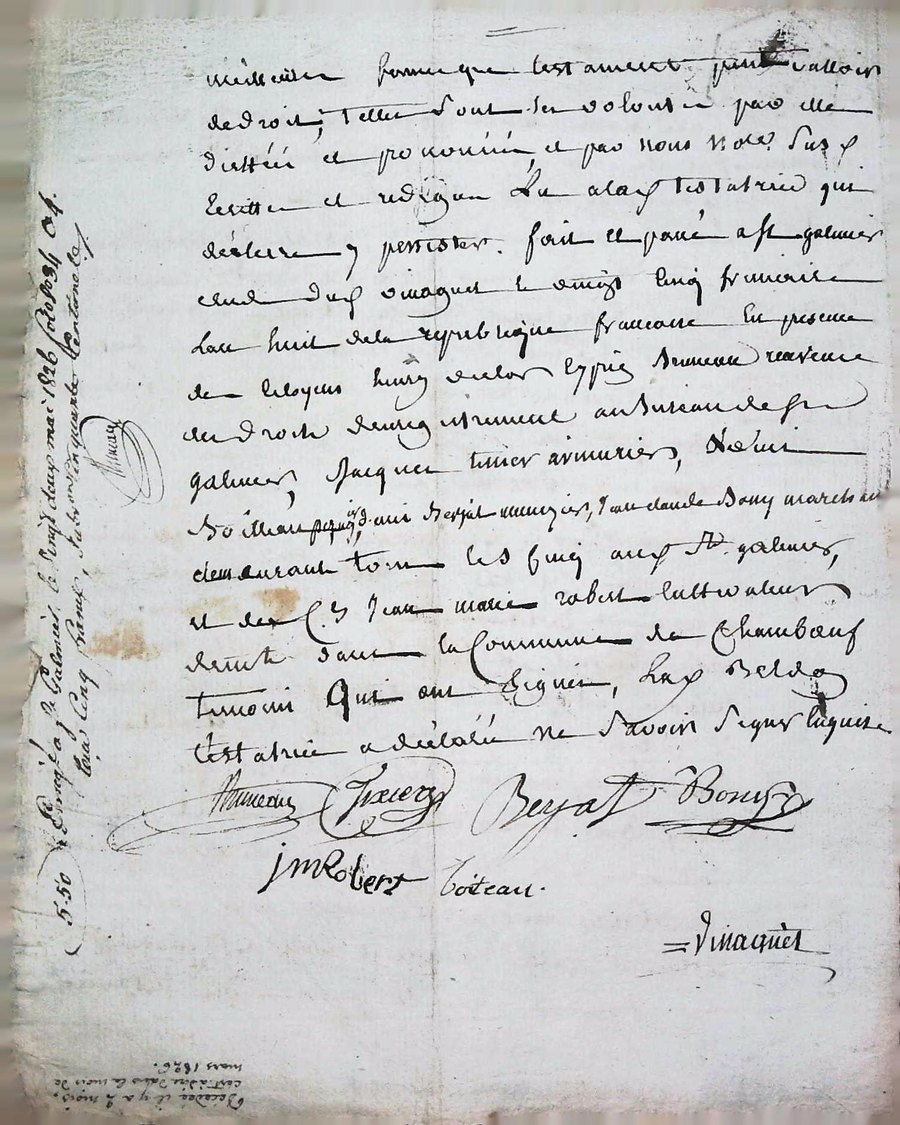 meilleure forme que testament peut valloir
de droit, telles sont ses volontés par elle
dictéés et prononcéés, et par nous notre susd
écrittes et redigées Lu a lad testatrice qui
déclaire y persister. fait et passé a St galmier
etude dud vinagret le vingt cinq frimaire
Lan huit de la republique francaise En presence
de Citoyens henry Bruneau receveur
des droits denregistrement au bureau de St
galmier, Jacques tixier armurier,
Boitteau Berjat menuizier, Jean claude Bony marchand
demeurant tous les cinq aud St. galmier,
et de C. Jean marie robert Cultivateur
demt dans la Commune de Chambœuf
temoins Qui ont signés, Lad
testatrice a déclaré ne savoir signer Enquise
Bruneau Tixier Berjat Bony
JMRobert Boiteau.
= Vinagret
5-50 Enreg a St Galmier le vingt deux mai 1826 folio 34
recu Cinq francs, cinquante Centimes
Bruneau
Décédée il y a 2 mois.
c'est à dire dans le mois de
mars 1826.